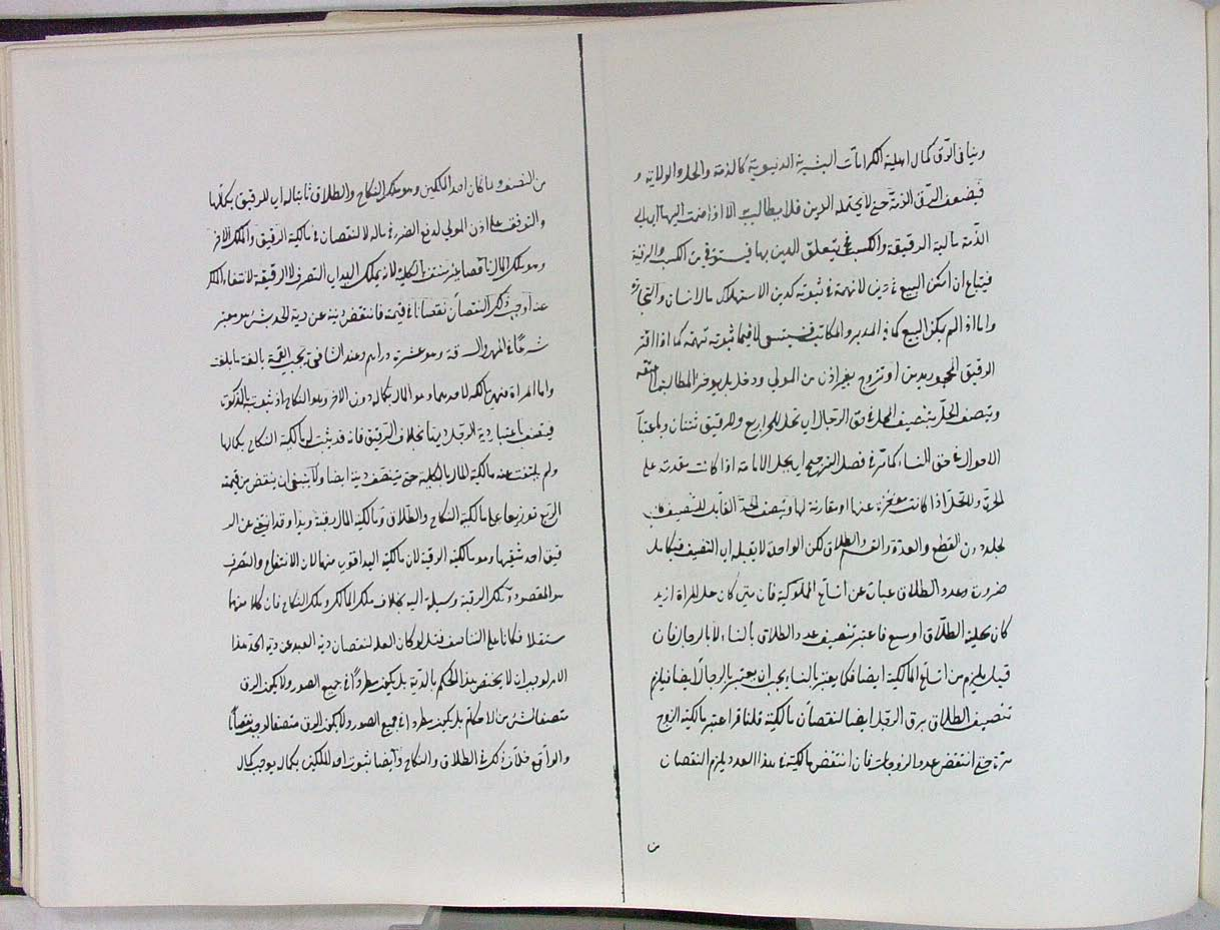 وينافى الرق كمال اهلية الكرامات البشرية الدنيوية كالذمة والحل والولاية و
فيضعف الرق الذمة حتى لا يحتمله الدين فلا يطالب به الا اذا ضمت اليها اى الى
الذمة مالية الرقيقة والكسب فح يتعلق الدين بها فيستوفى من الكسب والرقبة
فيباع ان امكن البيع فى دين لا تهمة فى ثبوته كدين الاستهلاك مالا لانسان والتجارة
واما اذا لم يمكن البيع كما فى المدبر والمكاتب فيستسعى لا فيما ثبوته تهمة كما اذا اقر
الرقيق المحجور بدين او تزوج بغير اذن من المولى ودخل بل يؤخر المطالبة الى عتقه
وتنصف الحل بتنصيف المحل فى حق الرجال اى تحل للحر اربع وللرقيق ثنتان وباعتبار
الاحوال فى حق النساء كما مر فى فصل الترجيح اى يحل الامة اذا كانت مقدمة على
الحرة ولا تحل اذا كانت مؤخرة عنها او مقارنة لها وتنصف الحد القابل للتنصيف
لجلد دون القطع والعدة والقسم والطلاق لكن الواحدة لا يقبله اى التنصيف فيكامل
ضرورة وعدد الطلاق عبارة عن اتساع المملوكية فان متى كان حل المراة ازيد
كان محلية الطلاق اوسع فاعتبر تنصيف عدد الطلاق بالنساء لا بالرجال فان
قيل يلزم من اتساع المالكية ايضا فكما يعتبر بالنساء يجب ان يعتبر بالرجال ايضا فيلزم
تنصيف الطلاق برق الرجل ايضا لنقصان مالكيته قلنا قد اعتبر مالكية الزوج
مرة حتى انتقض عدد الزوجات فان انتقض مالكيته فى هذا العدد يلزم النقصان
من
من النصف ولما كان احد الملكين وهو ملك النكاح والطلاق ثابتا له اى للرقيق بكمالها
والتوقف على اذن المولى لدفع الضرر فى ماله لا لنقصان فى مالكية الرقيق والملك الاخر
وهو ملك المال ناقصا غير منتف بالكلية لانه يملك اليد اى التصرف لا الرقبة لانتفاء الملك
عنه اوجب ذلك النقصان نقصانا فى قيمته فانتقض ديته عن دية الحر بشئ هو معتبر
شرعا فى المهر والسرقة وهو عشرة دراهم وعند الشافعى يجب القيمة بالغة ما بلغت
واما المراة فهى مالكة لاحدهما وهو المال بكماله دون الاخر وهو النكاح اذ ثبوته بالذكورة
فينصف باعتباره دية الرجل ديتها بخلاف الرقيق فانه قد يثبت له مالكية النكاح بكمالها
ولم ينتف عنه مالكية المال بالكلية حتى يتنصف ديته ايضا ولا ينبغى ان ينتقض من قيمته
الربع توزيعا على مالكية النكاح والطلاق ومالكية المال رقبة ويدا وقد انتفى عن الر
قيق احد شقيها وهو مالكية الرقبة لان مالكية اليد اقوى منها لان الانتفاع والتصرف
هو المقصود وملك الرقبة وسيلة اليه بخلاف ملك المال وملك النكاح فان كلا منهما
مستقلا فكانا على التناصف قيل لو كان العلة لنقصان دية العبد عن دية الحر هذا
الامر لوجب ان لا يختص هذا الحكم بالدية بل يكون مطردا فى جميع الصور ولا يكون الرق
منصفا لشئ من الاحكام بل يكون مطردا فى جميع الصور ولا يكون الرق منصفا لوجب نقصانا
والواقع خلاف ذلك فى الطلاق والنكاح وايضا ثبوت احد الملكين بكماله يوجب كمال